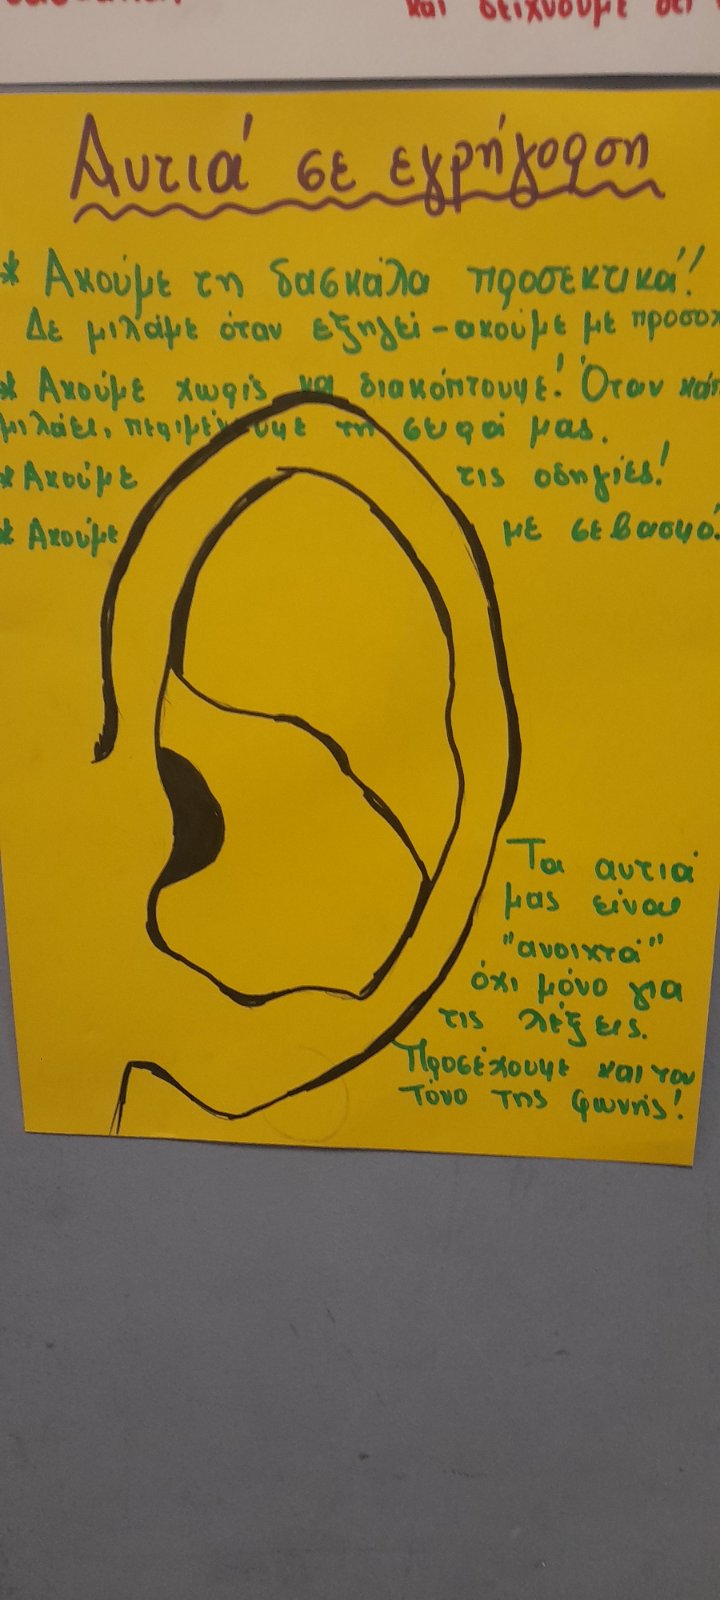 και δείχνουμε ότι
Αυτιά σε εγρήγορση
* Ακούμε τη δασκάλα προσεκτικά!!
Δε μιλάμε όταν εξηγεί - ακούμε με προσοχ
* Ακούμε χωρίς να διακόπτουμε! Όταν κάπ
μιλάει, περιμένουμε τη σειρά μας.
* Ακούμε τις οδηγίες!
* Ακούμε με σεβασμό!
Τα αυτιά
μας είναι
"ανοιχτά"
όχι μόνο για
τις λέξεις.
Προσέχουμε και τον
τόνο της φωνής!